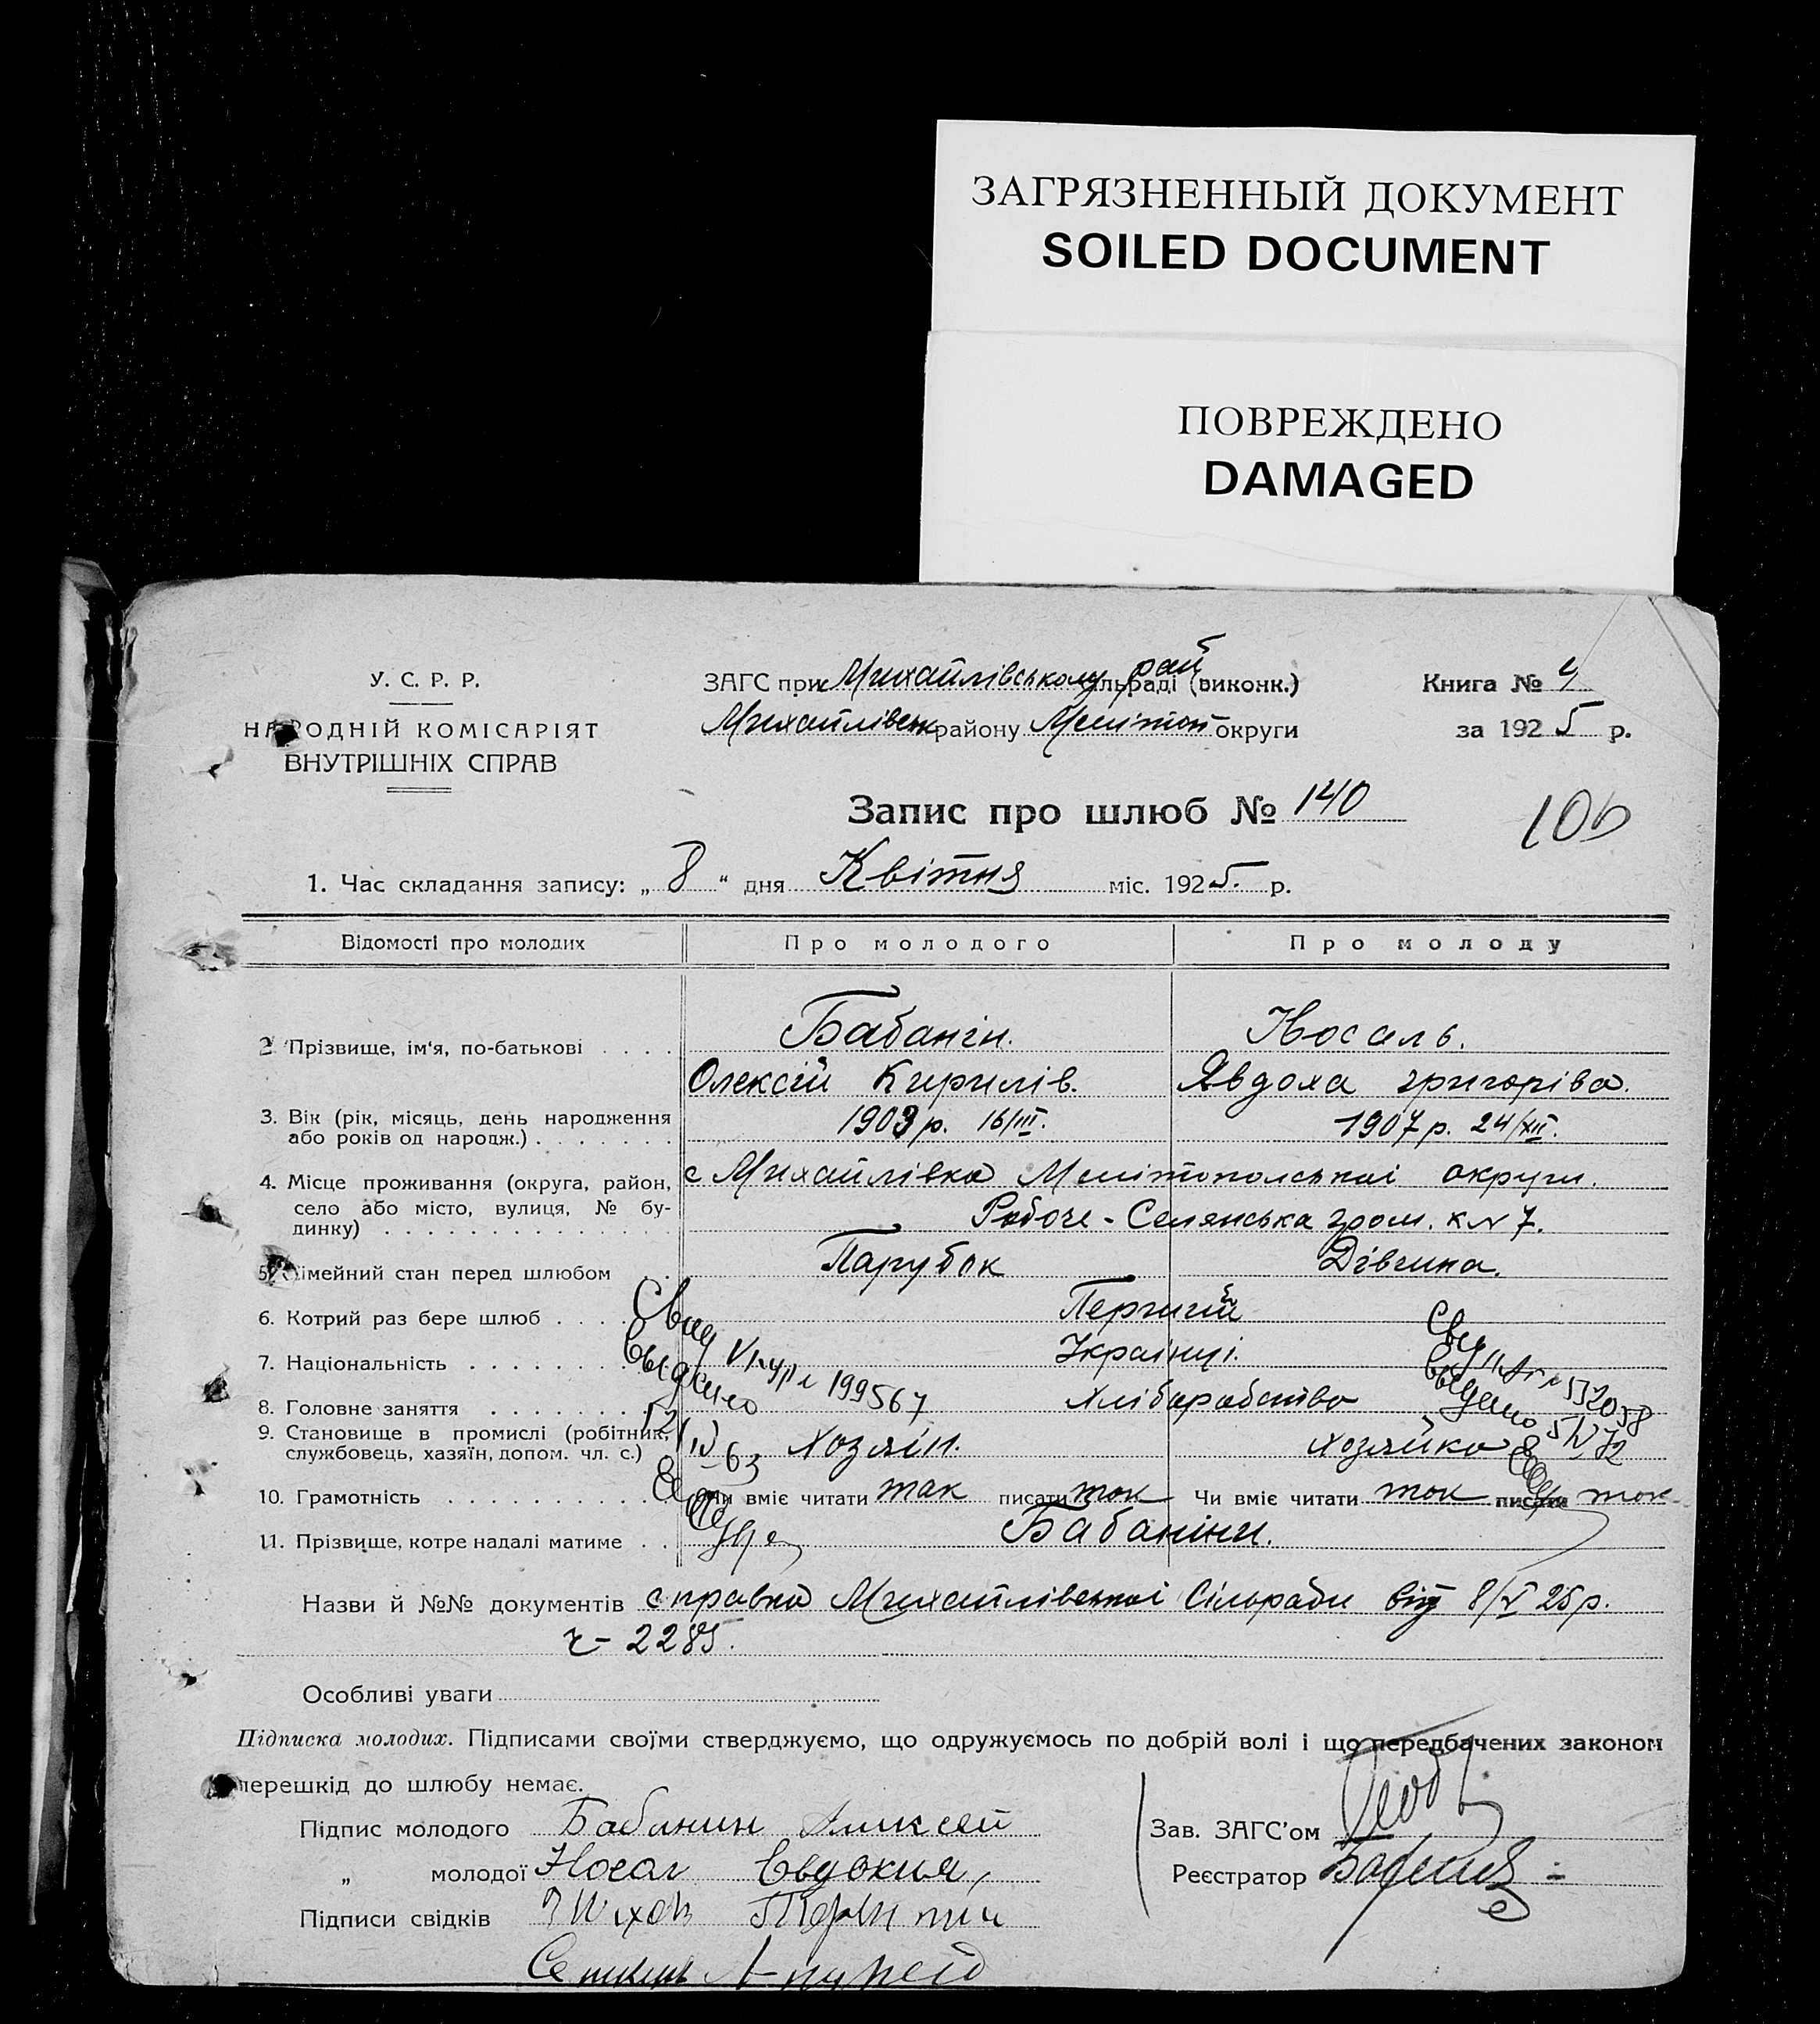 ЗАГРЯЗНЕННЫЙ ДОКУМЕНТ
SOILED DOCUMENT
ПОВРЕЖДЕНО
DAMAGED
У. С. Р. Р.
НАРОДНІЙ КОМІСАРІЯТ
ВНУТРІШНІХ СПРАВ
ЗАГС при Михайлівському рай (виконк.)
Михайлівськ району Мелітоп округи
Книга № 4
за 1925 р.
Запис про шлюб № 140
106
1. Час складання запису: „ 8 “ дня Квітня міс. 1925. р.
Відомості про молодих Про молодого Про молоду
2 Прізвище, ім'я, по-батькові . . . . Бабанін. Носаль.
Олексій Кирилів. Явдоха григорівa.
3. Вік (рік, місяць, день народження або років од народж.) . . . . . . . 1903 р. 16/III. 1907 р. 24/XII.
4. Місце проживання (округа, район, село або місто, вулиця, № будинку) . . . . . . . . . . . . . . с Михайлівка Мелітопольської округи.
Робоче-Селянська гром. к № 7.
5. Сімейний стан перед шлюбом Парубок Дівчина.
6. Котрий раз бере шлюб . . . . Перший
7. Національність . . . . . . . . Українці.
8. Головне заняття . . . . . . . Хліборобство
9. Становище в промислі (робітник, службовець, хазяїн, допом. чл. с.) Хозяїн. Хозяйка
10. Грамотність . . . . . . . . . . Чи вміє читати так писати так Чи вміє читати так писати так
11. Прізвище, котре надалі матиме . . Бабаніни.
Свид
Выдано
199567
63
Свид
выдано
Назви й №№ документів справка Михайлівської Сільради від 8/IV 25 р.
ч- 2285.
Особливі уваги
Підписка молодих. Підписами своїми стверджуємо, що одружуємось по добрій волі і що передбачених законом
перешкід до шлюбу немає.
Підпис молодого Бабанин Алексей
„ молодої Носал Евдокия,
Підписи свідків
Зав. ЗАГС'ом
Реєстратор